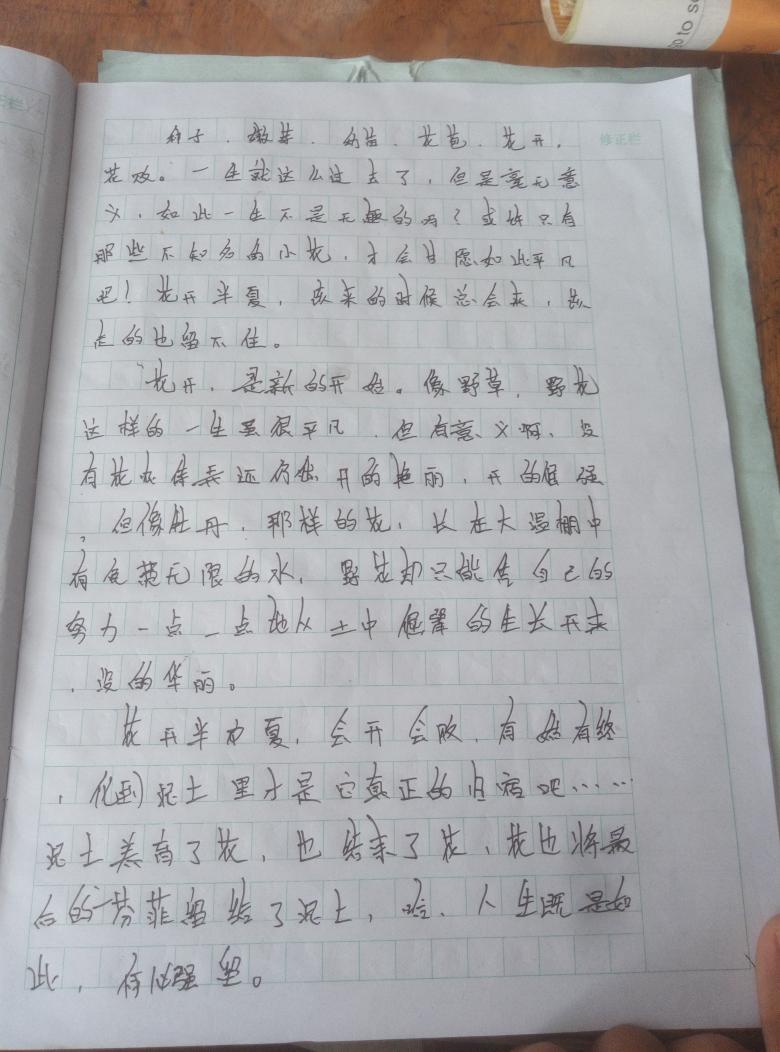 go to s
修正栏
种子．嫩芽．幼苗．花苞．花开．
花败。一生就这么过去了，但是毫无意
义，如此一生不是无趣的吗？或许只有
那些不知名的小花，才会甘愿如此平凡
吧！花开半夏，该来的时候总会来，该
走的也留不住。
花开，是新的开始。像野草，野花
这样的一生虽很平凡，但有意义啊，没
有花农侍弄还仍然开的艳丽，开的倔强
，但像牡丹，那样的花，长在大温棚中
有无限的水，野花却只能靠自己的
努力一点一点地从土中倔犟的生长开来
，没的华丽。
花开半夏，会开会败，有始有终
，化到泥土里才是它真正的归宿吧……
泥土养育了花，也结束了花，花也将最
后的芬菲留给了泥土，唉，人生既是如
此，何必强留。